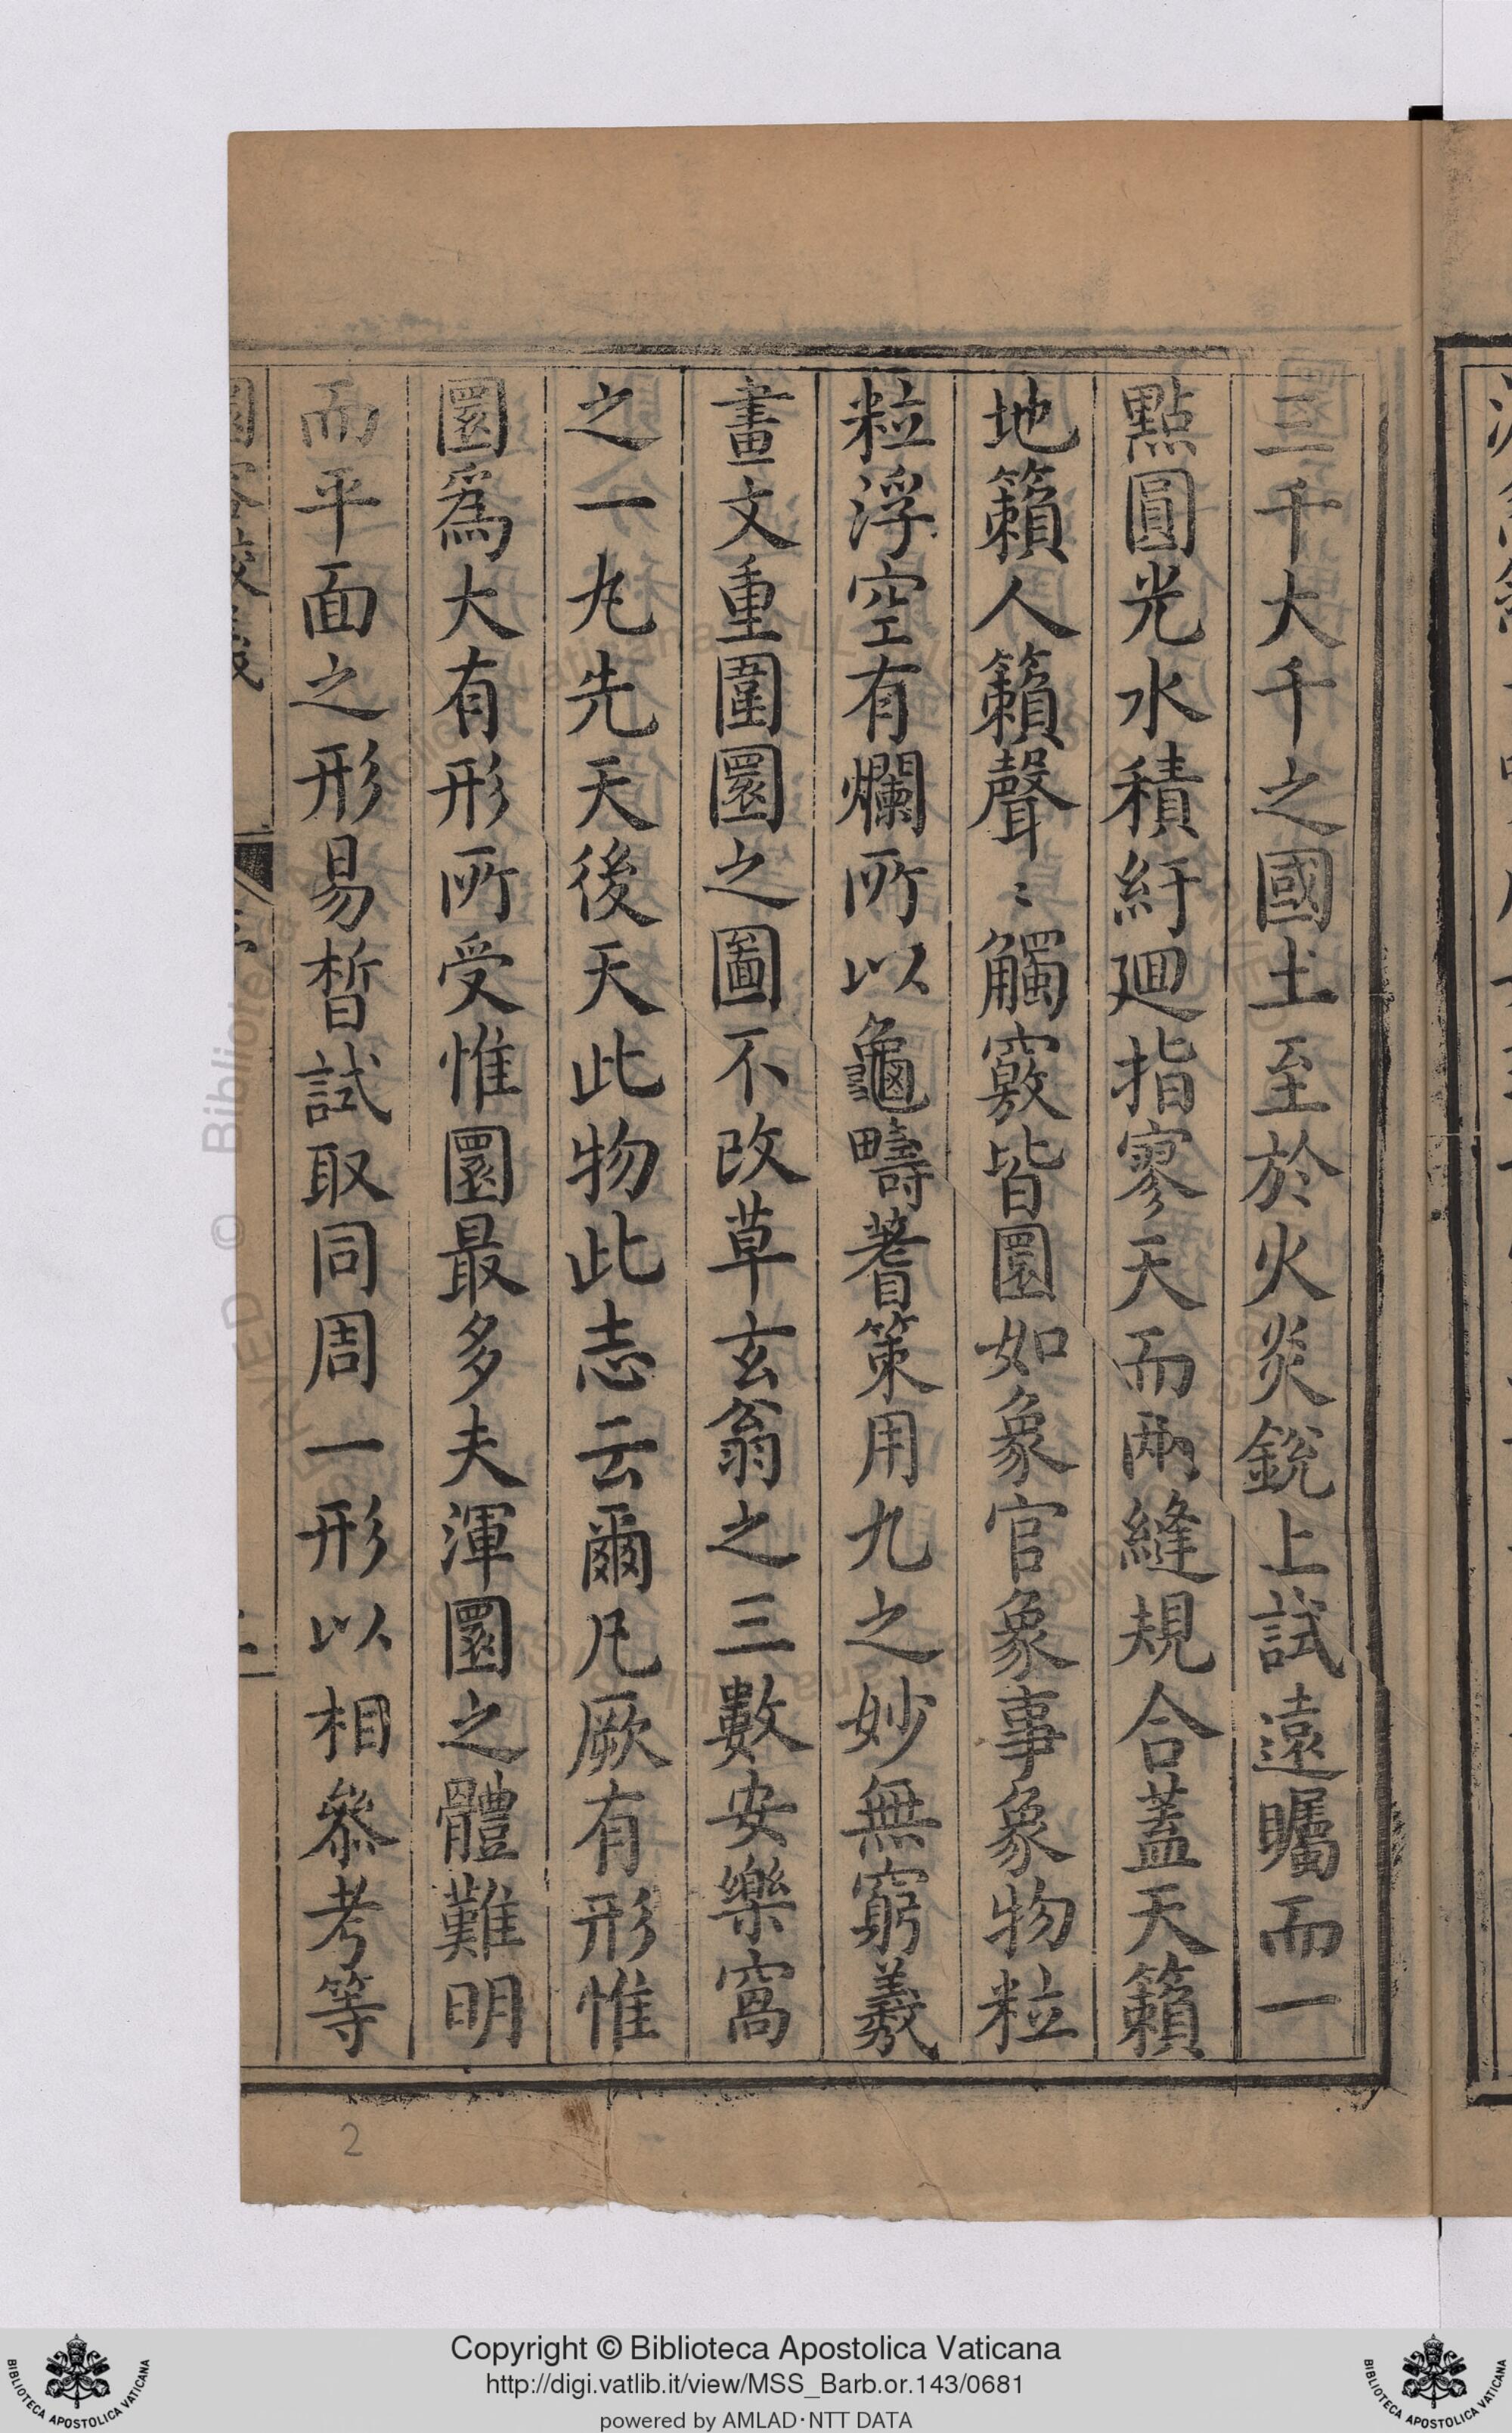 三千大千之國土至於火炎銳上試遠矚而一
點圓光水積紆迴指寥天而兩縫規合蓋天籟
地籟人籟聲〻觸竅皆圜如象官象事象物粒
粒浮空有爛所以龜疇蓍策用九之妙無窮羲
畫文重圍圜之圖不改草玄翁之三數安樂窩
之一丸先天後天此物此志云爾凡厥有形惟
圜爲大有形所受惟圜最多夫渾圜之體難明
而平面之形易晳試取同周一形以相叅考等
2
Copyright © Biblioteca Apostolica Vaticana
http://digi.vatlib.it/view/MSS_Barb.or.143/0681
powered by AMLAD·NTT DATA
BIBLIOTECA APOSTOLICA VATICANA
BIBLIOTECA APOSTOLICA VATICANA